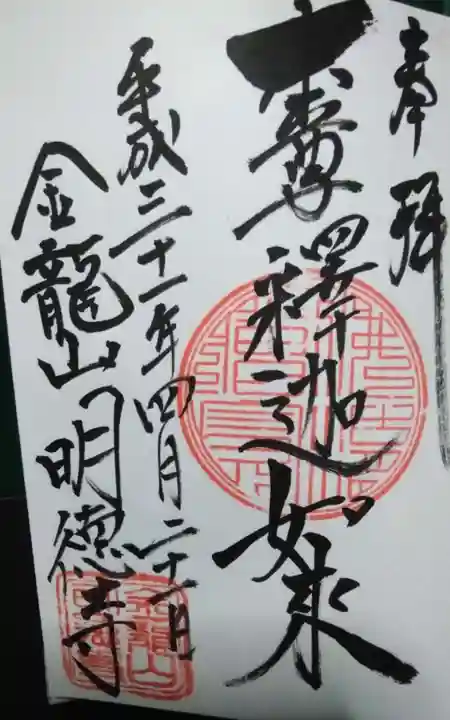 奉拝
本尊釋迦如来
平成三十一年四月二十一日
金龍山明徳寺